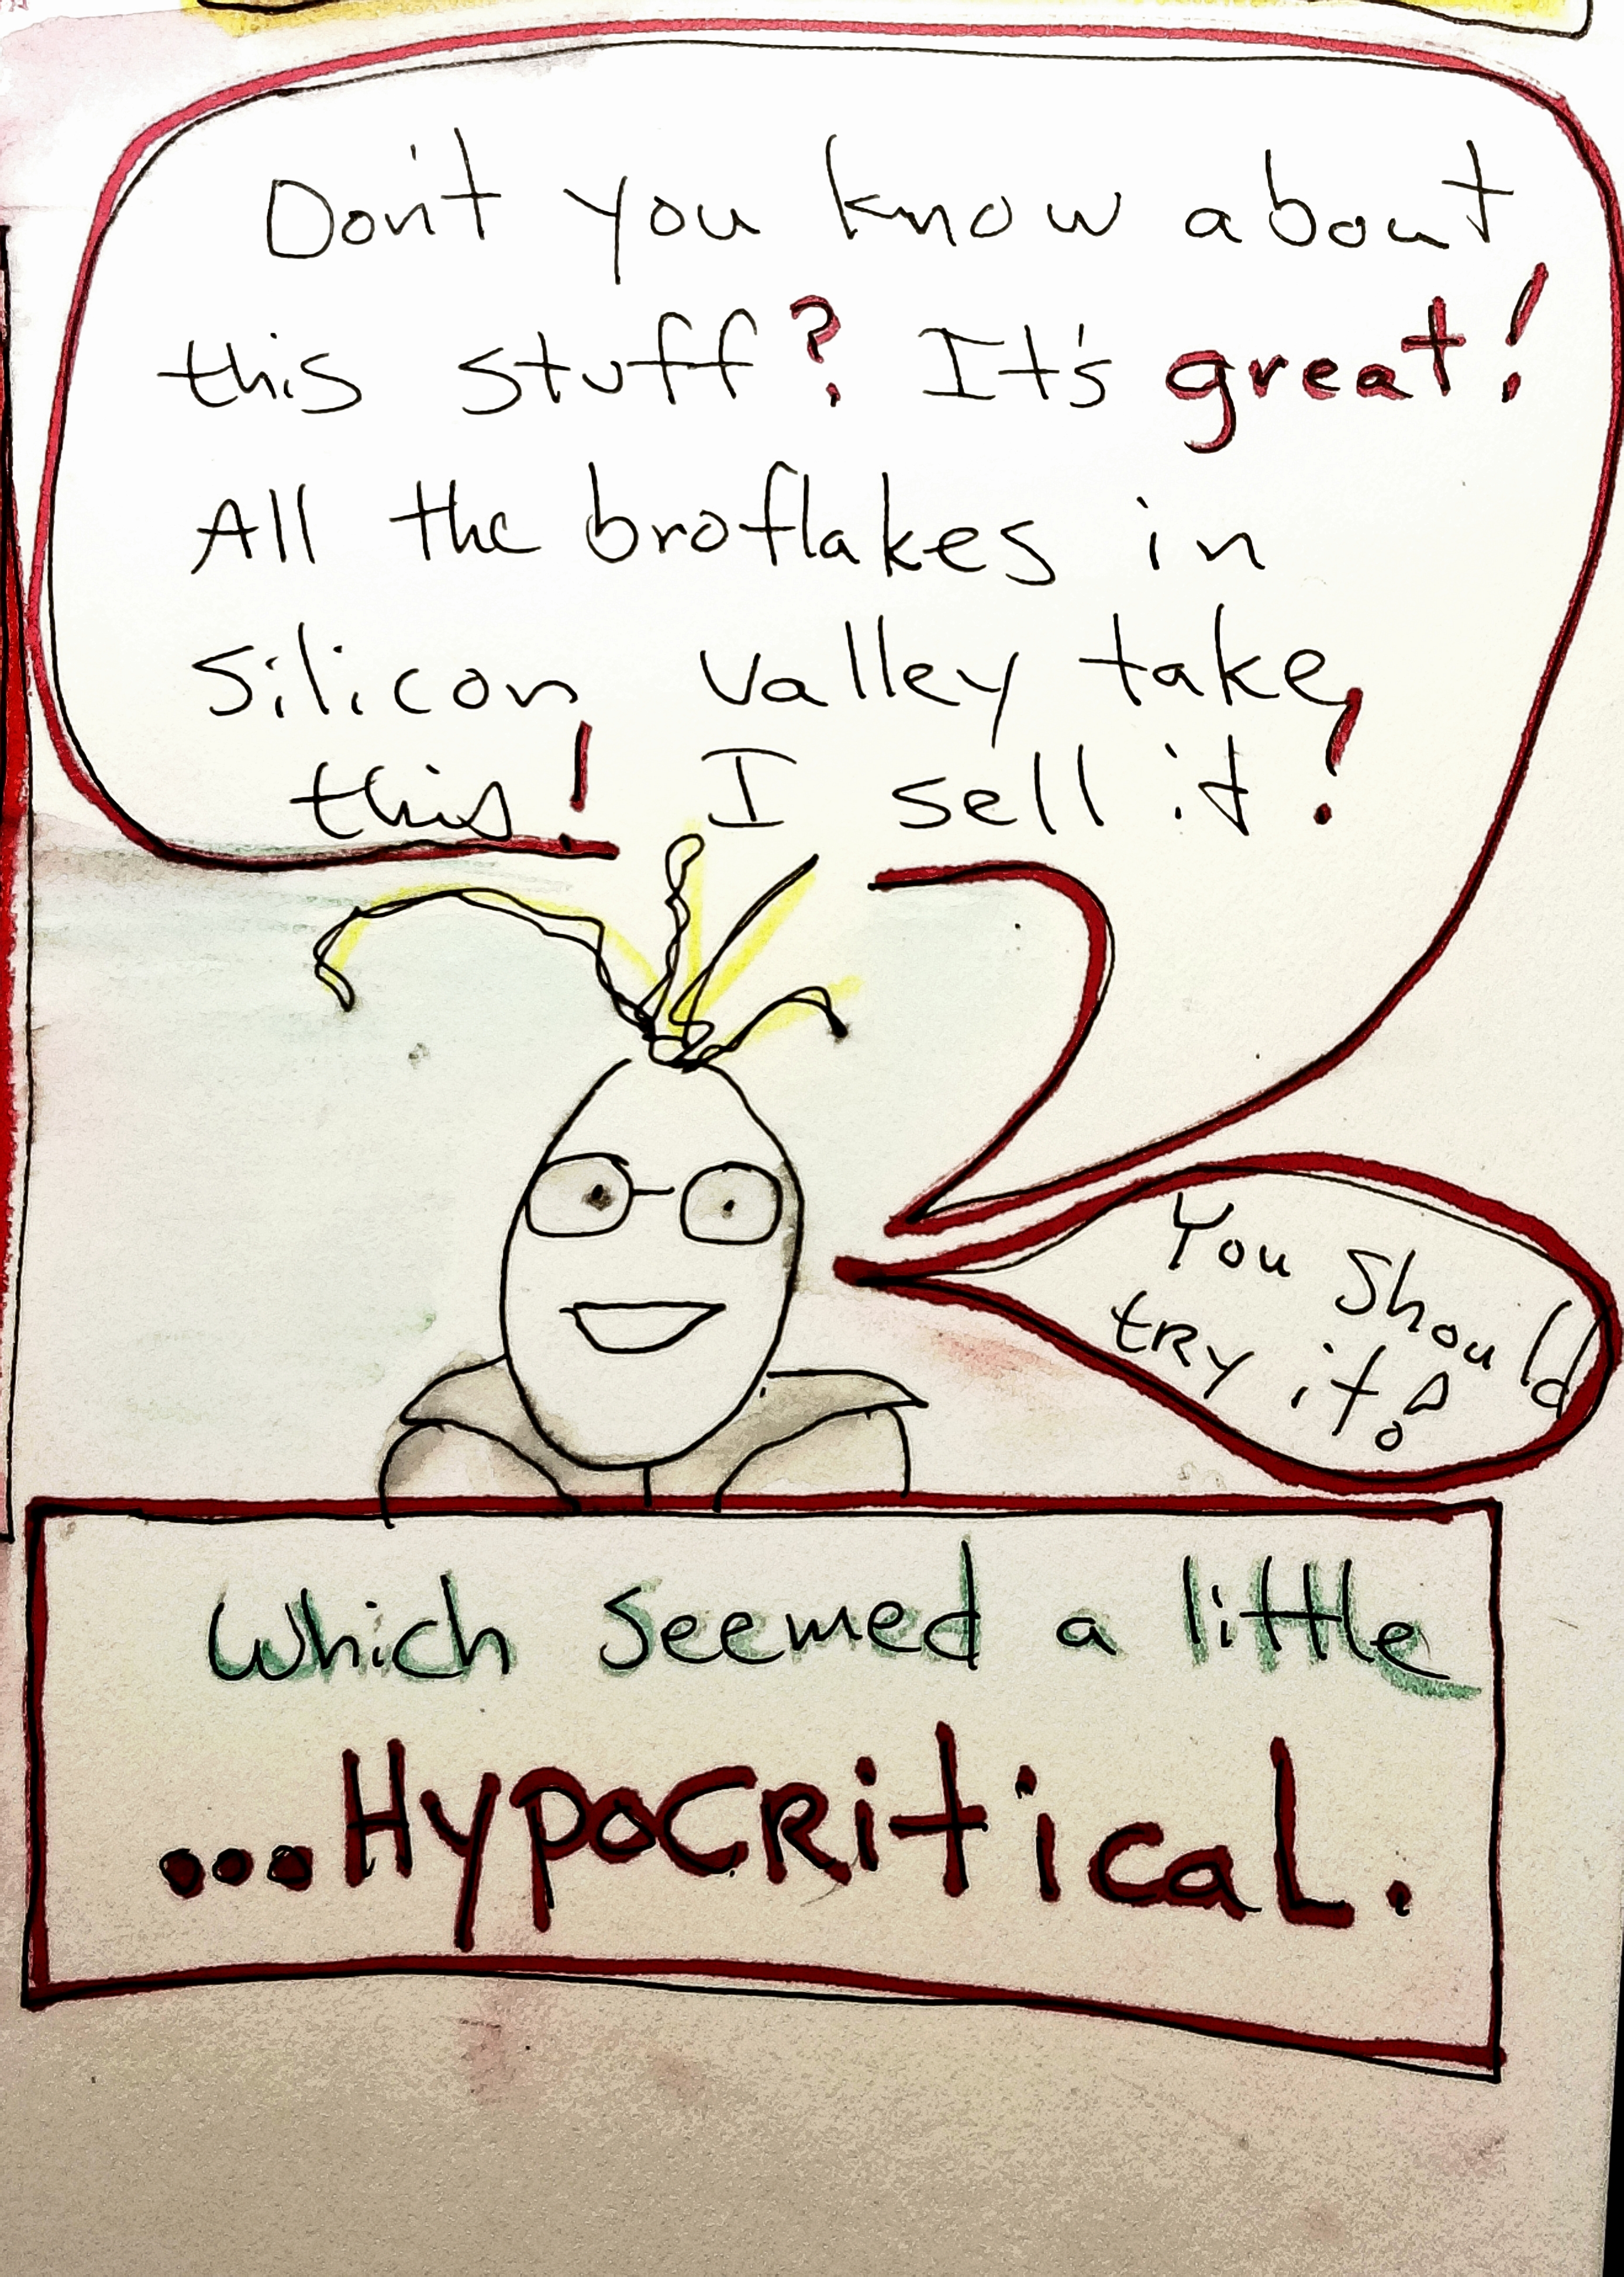 Don't you know about
this stuff? It's great!
All the broflakes in
Silicon Valley take
this! I sell it!
You should
try it!
Which seemed a little
...HypocRitical.